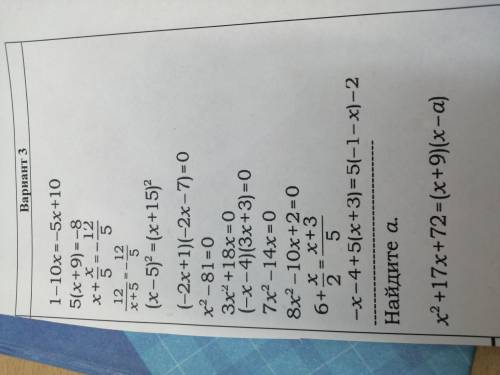 Вариант 3
1−10x=−5x+10
5(x+9)=−8
x+x/5=−12/5
12/(x+5)=−12/5
(x−5)²=(x+15)²
(−2x+1)(−2x−7)=0
x²−81=0
3x²+18x=0
(−x−4)(3x+3)=0
7x²−14x=0
8x²−10x+2=0
6+x/2=(x+3)/5
−x−4+5(x+3)=5(−1−x)−2
Найдите a.
x²+17x+72=(x+9)(x−a)